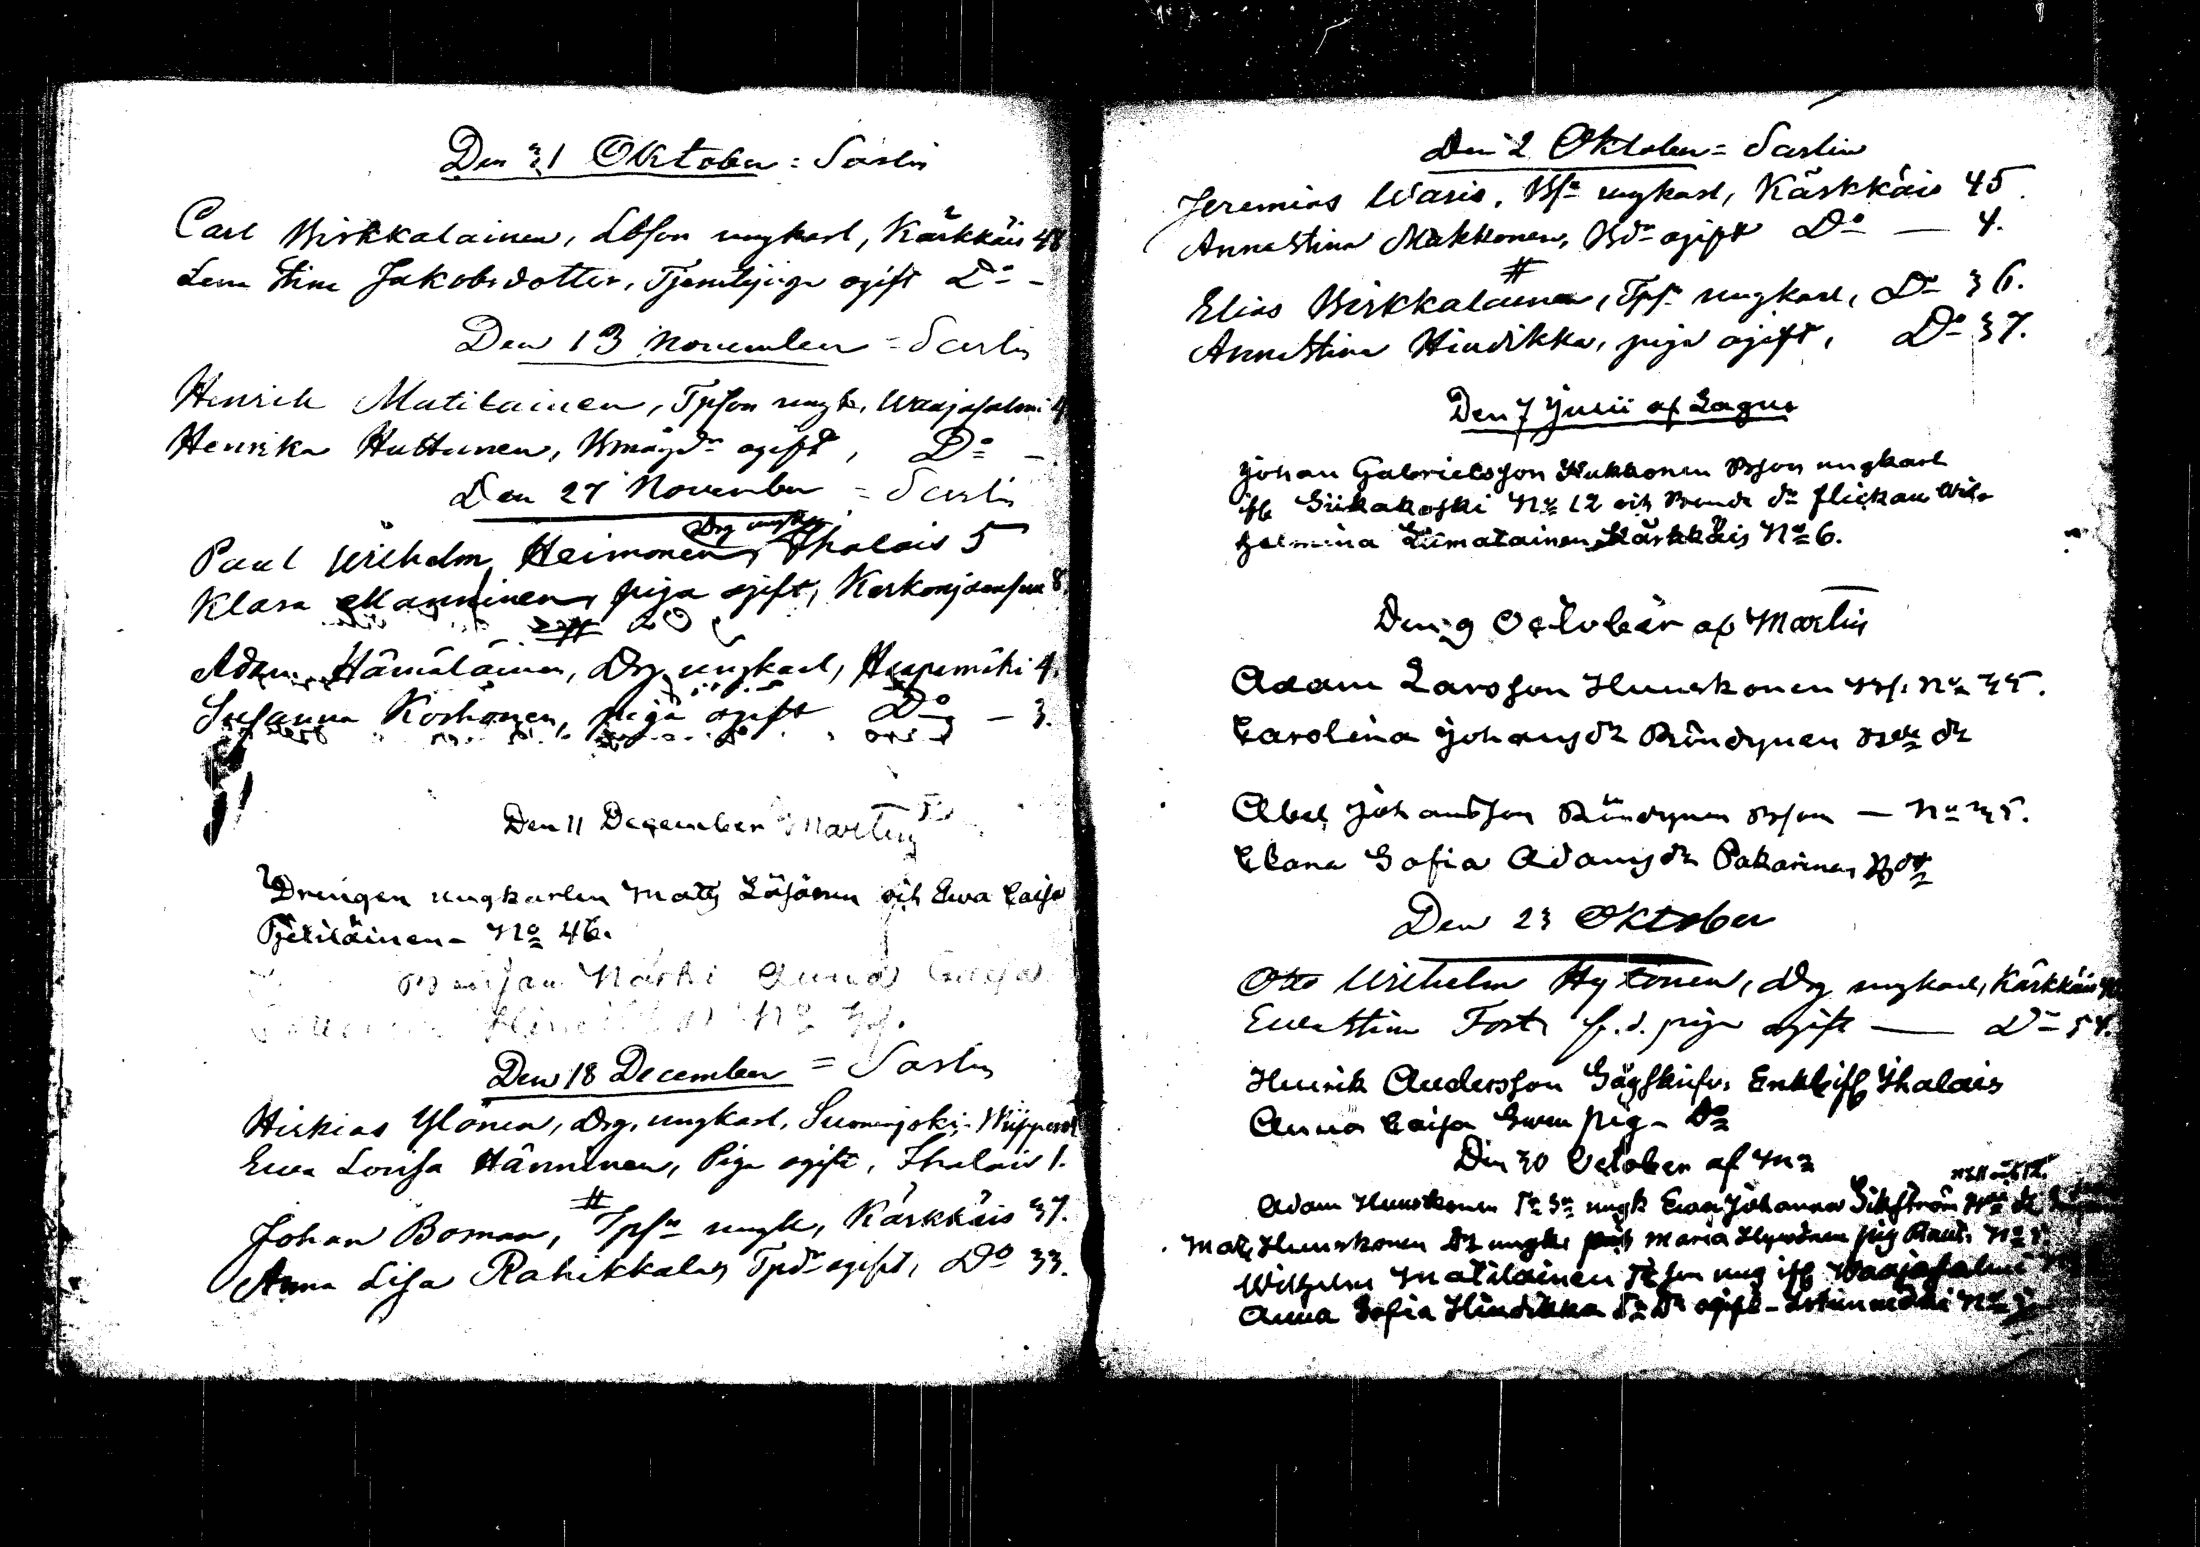 Den 31 Oktober = Sarlin
Carl Birkkalainen, Lbson ungkarl, Kärkkäis 48
Lena Stina Jakobsdotter, Tjenstepiga ogift Do -
Den 13 November = Sarlin
Henrik Matilainen, Tpson ungk, Waajasalmi 4
Henrika Huttunen, Bmågdr ogift, Do -
Den 27 November = Sarlin
Drg ungkarl
Paul Wilhelm Heimonen, Ihalais 5
Klara Manninen, piga ogift, Kerkonjoensuu 8
#
Adam Hämäläinen, Drg ungkarl, Haapimäki 4.
Susanna Korhonen, piga ogift Do - 3.
Den 11 December Martin
Drengen ungkarlen Matts Löjönen och Ewa Caisa
Pjetiläinen - No 46.
Närhi Anna Caisa
No
Den 18 December = Sarlin
Hiskias Ylönen, Drg, ungkarl, Suonenjoki,
Ewa Lovisa Hänninen, Piga ogift, Ihalais 1.
#
Johan Boman, Tpsn ungk, Kärkkäis 37.
Anna Lisa Rahikkalas Tpdr ogift, Do 33.
Den 2 Oktober = Sarlin
Jeremias Waris, Bsn ungkarl, Kärkkäis 45
Anna Stina Makkonen, Bdr ogift Do — 4.
#
Elias Birkkalainen, Tpsn ungkarl, Do 36.
Anna Stina Hindikka, piga ogift, Do 37.
Den 7 Junii af Lagus
Johan Gabrielsson Hukkonen Bson ungkarl
ifl Siikakoski No 12 och Bonde dr flickan Wilh
helmina Liimatainen Kärkkäis No 6.
Den 9 October af Martin
Adam Larsson Huuskonen Bs. No 35.
Carolina Johansdr Röndynen Bde dr
Abel Johansson Röndynen Bson — No 35.
Clara Sofia Adamsdr Pakarinen Bdr
Den 23 Oktober
Otto Wilhelm Hytönen, Drg ungkarl, Kärkkäis
Eva Stina Forst f.d. piga ogift — Do 54.
Henrik Andersson Enkl ifl Ihalais
Anna Caisa pig - Do
Den 30 October af Mn
Adam Huuskonen ungk Ewa Johanna Sikström
Matts Huuskonen Dr ungk Maria pig No
Wilhelm Matilainen Tpson ung ifl Waajasalmi
Anna Sofia Hindikka dr ogift - Istunmäki No